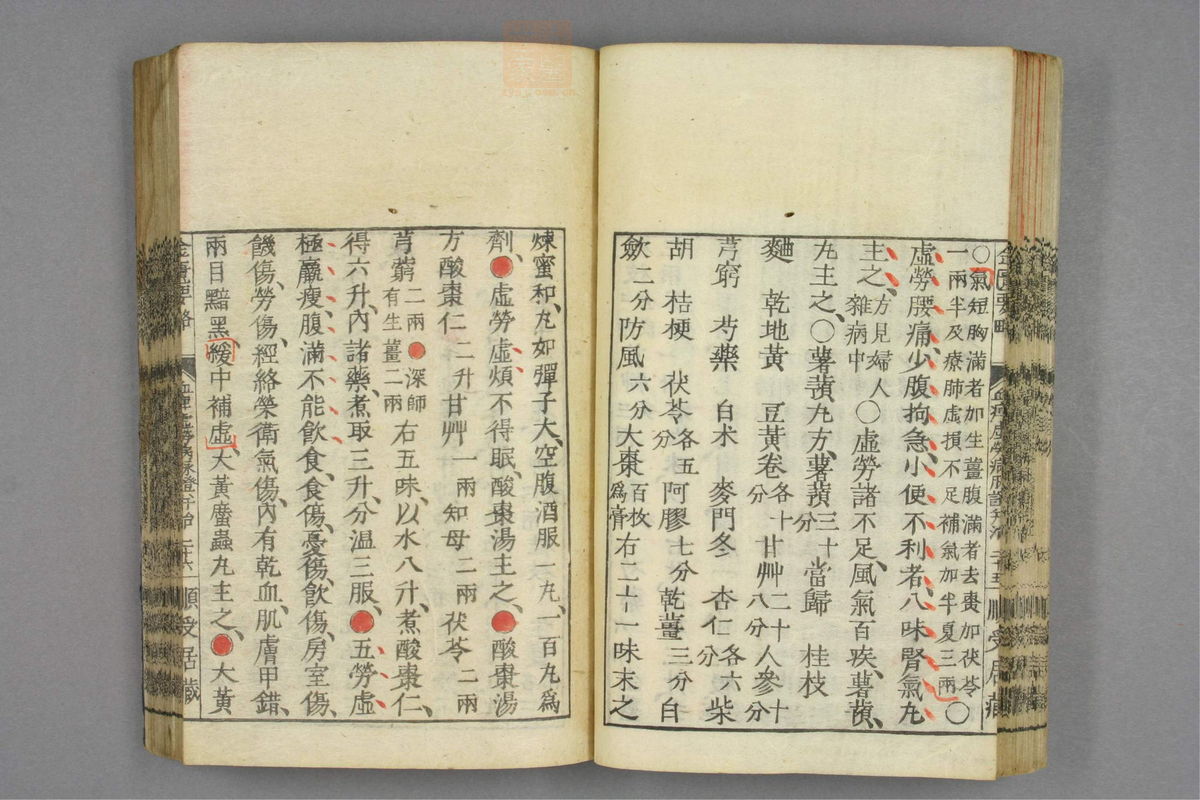 ○氣短胸滿者加生薑腹滿者去棗加茯苓
一兩半及療肺虛損不足補氣加半夏三兩○
虛勞腰痛、少腹拘急、小便不利者、八味腎氣丸
主之、方見婦人雜病中○虛勞諸不足、風氣百疾、薯蕷、
丸主之、○薯蕷丸方、薯蕷三十分當歸 桂枝
麯 乾地黃 豆黃卷各十分甘艸二十八分人參十分
芎窮 芍藥 白术 麥門冬 杏仁各六分柴
胡 桔梗 茯苓各五分阿膠七分乾薑三分白
斂二分防風六分大棗百枚爲膏右二十一味末之
煉蜜和、丸如彈子大、空腹酒服一丸、一百丸爲
劑、●虛勞虛煩不得眠、酸棗湯主之、●酸棗湯
方酸棗仁二升甘艸一兩知母二兩茯苓二兩
芎藭二兩●深師有生薑二兩右五味、以水八升、煮酸棗仁、
得六升、內諸藥、煮取三升、分溫三服、●五勞虛
極羸瘦、腹滿不能飲食、食傷、憂傷、飲傷、房室傷、
飢傷、勞傷、經絡榮衛氣傷、內有乾血、肌膚甲錯、
兩目黯黑、緩中補虛、大黃䗪蟲丸主之、●大黃
金匱要略 二十六 順受居藏